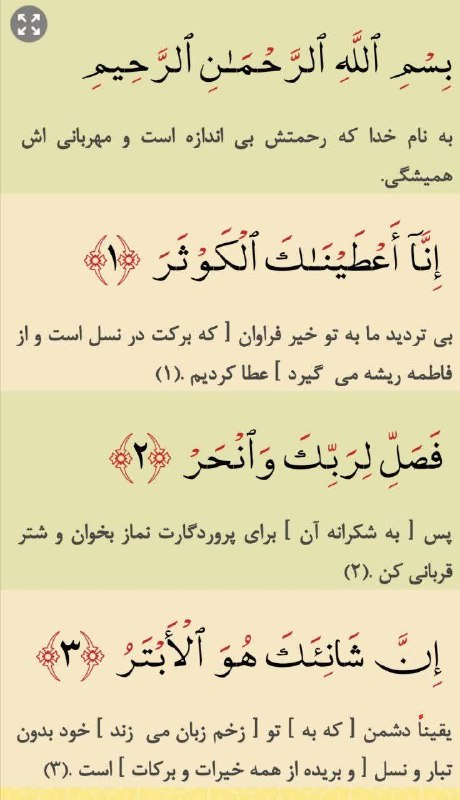 بِسْمِ ٱللَّهِ ٱلرَّحْمَـٰنِ ٱلرَّحِيمِ
به نام خدا که رحمتش بی اندازه است و مهربانی اش
همیشگی.
إِنَّآ أَعْطَيْنَـٰكَ ٱلْكَوْثَرَ ﴿١﴾
بی تردید ما به تو خیر فراوان [ که برکت در نسل است و از
فاطمه ریشه می گیرد ] عطا کردیم .(۱)
فَصَلِّ لِرَبِّكَ وَٱنْحَرْ ﴿٢﴾
پس [ به شکرانه آن ] برای پروردگارت نماز بخوان و شتر
قربانی کن .(۲)
إِنَّ شَانِئَكَ هُوَ ٱلْأَبْتَرُ ﴿٣﴾
یقیناً دشمن [ که به ] تو [ زخم زبان می زند ] خود بدون
تبار و نسل [ و بریده از همه خیرات و برکات ] است .(۳)